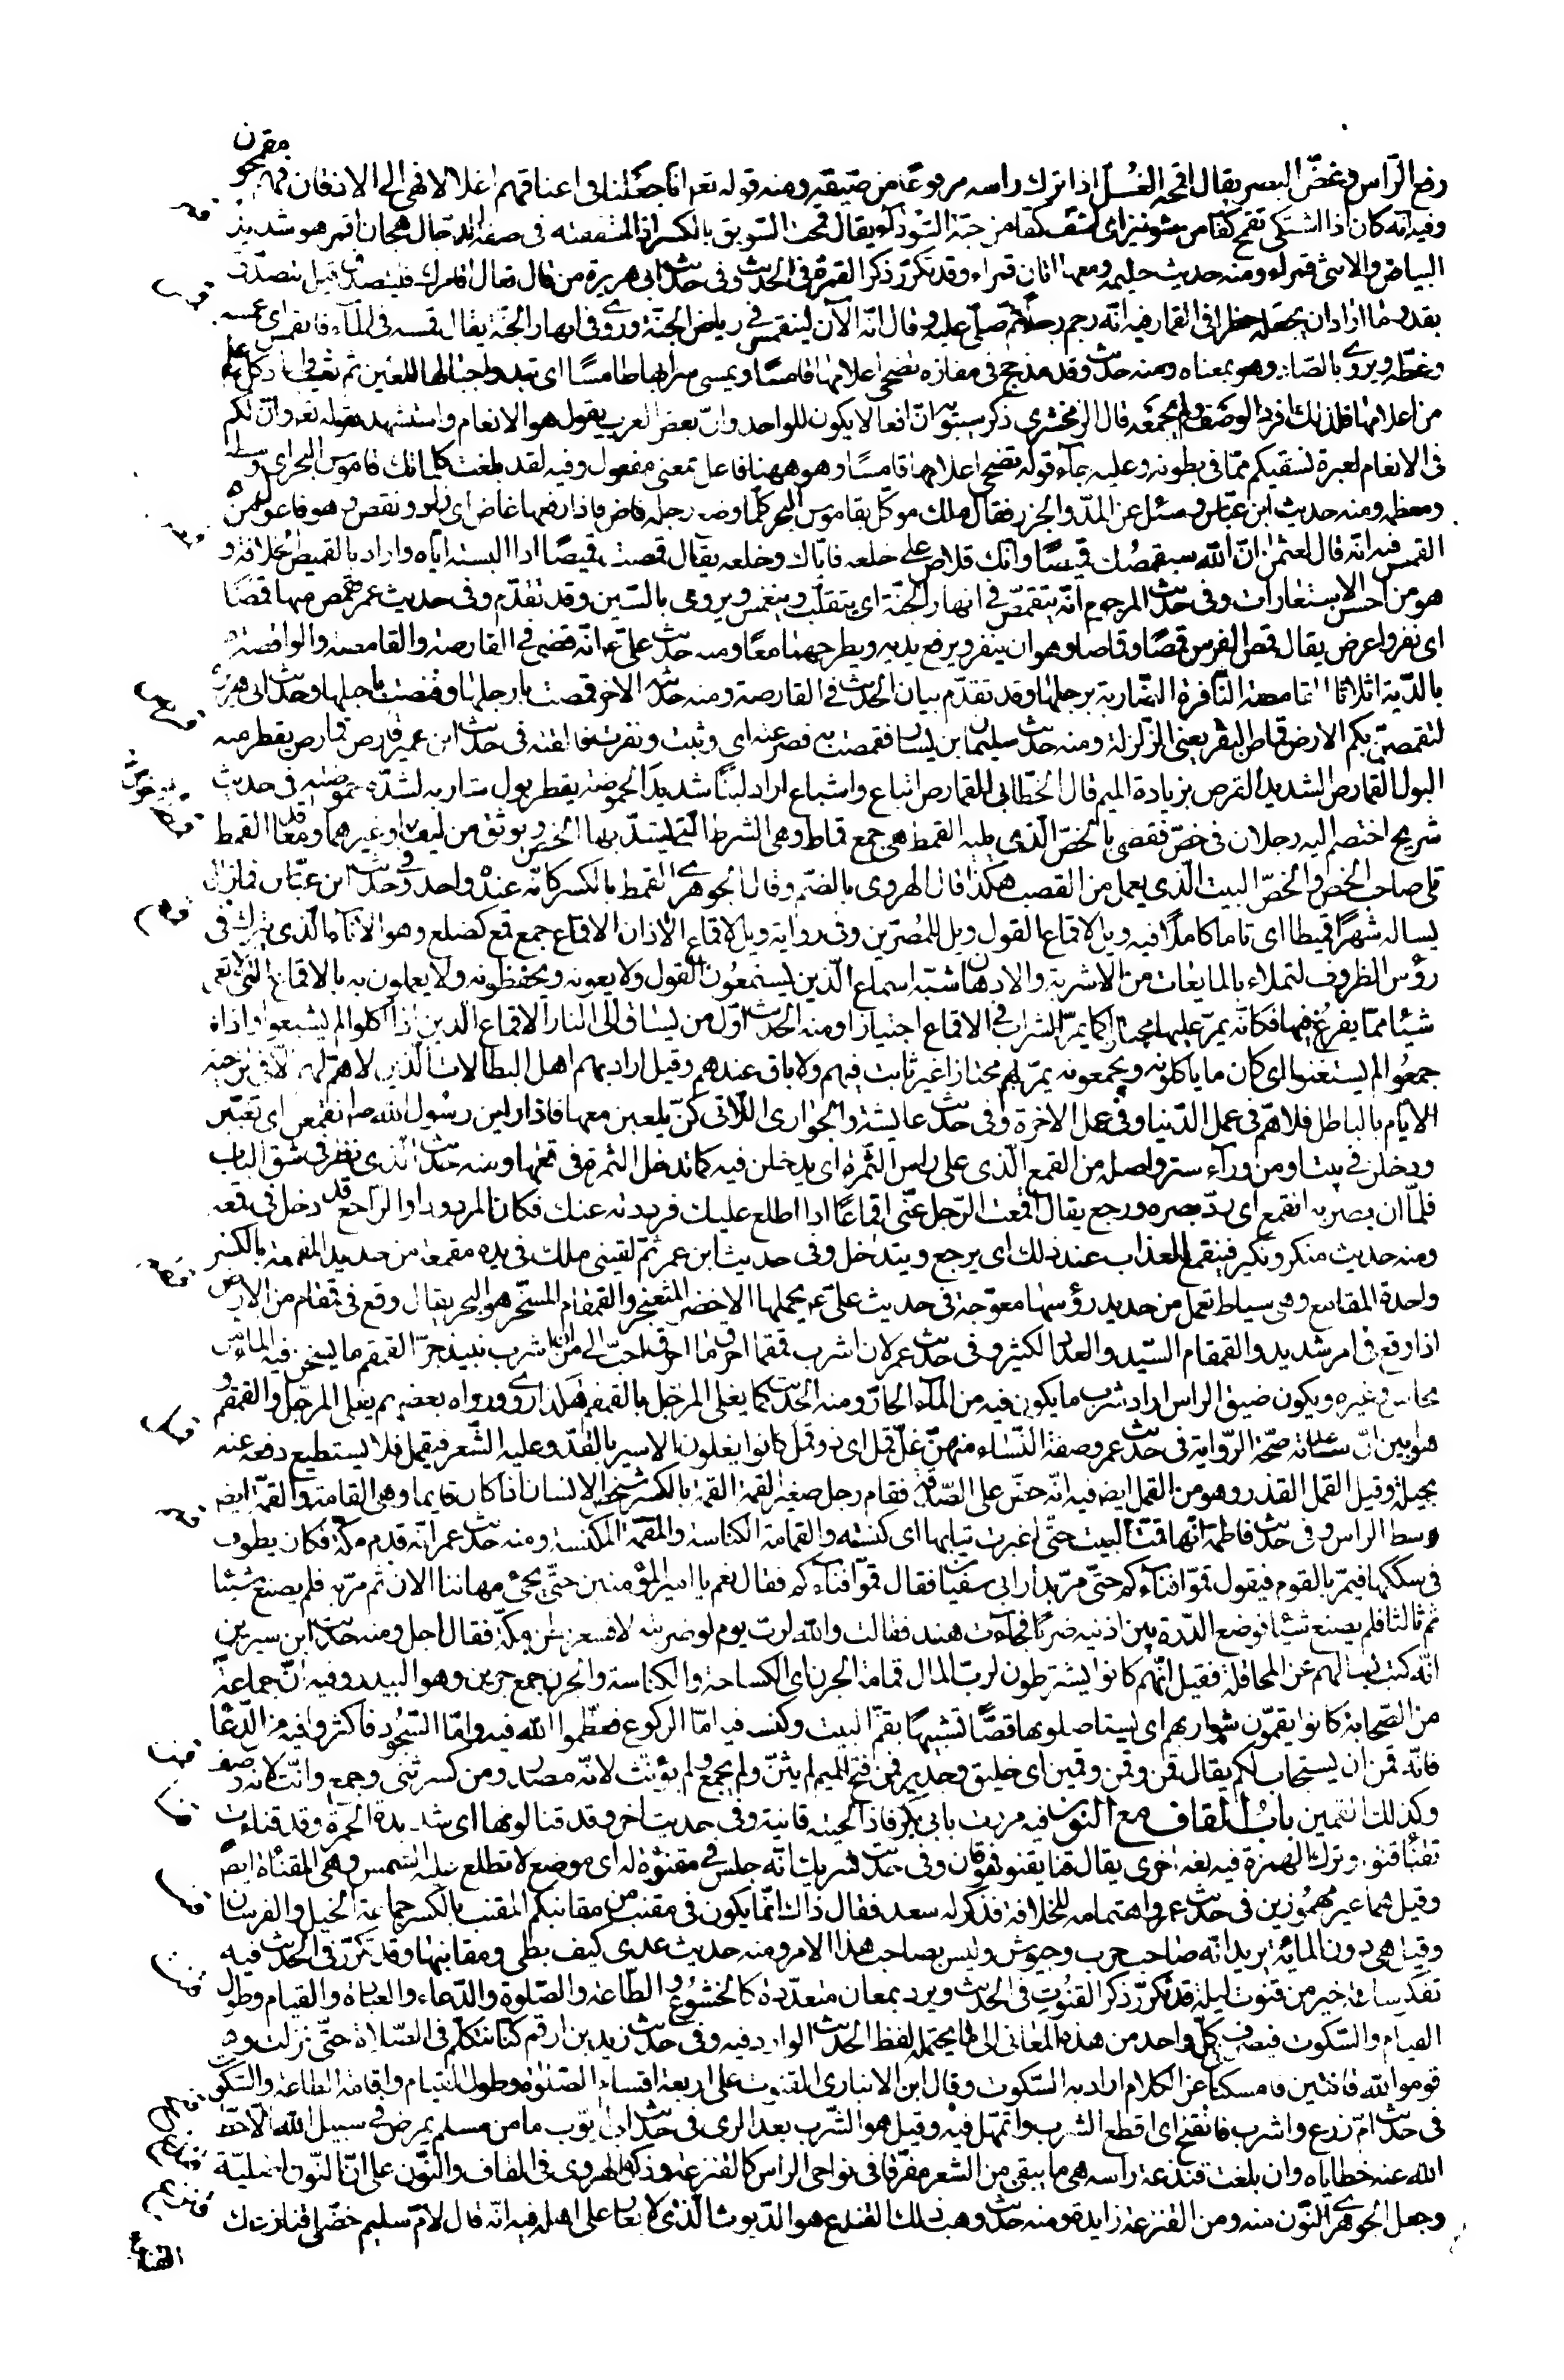 مقمحون
رفع الرّاس وغضّ البصر يقال اقمحه الغُل اذا ترك راسه مرفوعًا من ضيقه ومنه قوله تعر انا جعَلنا فى اعناقهم اغلالا فهى الى الاذقان فهم
وفيه انّه كان اذا اشتكى تقمّح كفّا من شونيز اى استفّ كفّا من حبّة السّودآء يقال قمحت السّويق بالكسر اذا استففته فى صفة الدجّال هجان اقمر هو شديد
البياض والانثى قمراء ومنه حديث حليمه ومعها اتان قمراء وقد تكرّر ذكر القمرة فى الحديث وفى حديث ابى هريرة من قال تعال اقامرك فليتصدق قيل يتصدّق
بقدر ما اراد ان يجعله خطرا فى القمار فيه انّه رجم رجلًا ثم صلّى عليه وقال انّه الآن لينقمس فى رياض الجنّة وروى فى انهار الجنّة يقال قمسه فى المآء فانقمس اى غمسه
وغطّه ويروى بالصّاد وهو بمعناه ومنه حديث وفد مذحج فى مفازه تضحى اعلامها قامسًا ويمسى سرابها طامسًا اى تبدو جبالها للعين ثم تغيب اراد كلّ علم
من اعلامها فلذلك افرد الوصف ولم يجمعه قال الزمخشرى ذكر سيبويه انّ افعالا يكون للواحد وانّ بعض العرب يقول هو الانعام واستشهد بقوله تعر وانّ لكم
فى الانعام لعبرة نسقيكم ممّا فى بطونه وعليه جآء قوله تضحى اعلامها قامسًا وهو ههنا فاعل بمعنى مفعول وفيه لقد بلغت كلماتك قاموس البحر اى وسطه
ومعظمه ومنه حديث ابن عبّاس وسئل عن المدّ والجزر فقال ملك موكل بقاموس البحر كلّما وضع رجله فاض فاذا رفعها غاض اى زاد ونقص وهو فاعول من
القمس فيه انّه قال لعثمن انّ الله سيقمصُك قميصًا وانّك تلاص على خلعه فايّاك وخلعه يقال قمصته قميصًا اذا البسته ايّاه واراد بالقميص الخلافة و
هو من احسن الاستعارات وفى حديث المرجوم انّه يتقمّص فى انهار الجنّة اى يتقلّب وينغمس ويروى بالسّين وقد تقدّم وفى حديث عمر فقمص منها قمصًا
اى نفر واعرض يقال قمص الفرس قمصًا وقماصا وهو ان ينفر ويرفع يديه ويطرحهما معًا ومنه حديث علىّ ع انّه قضى فى القارصة والقامصة والواقصة
بالدّية اثلاثا القامصة النّافرة الضّاربة برجلها وقد تقدّم بيان الحديث فى القارصة ومنه حديثه الاخر قمصت بارجلها وقنصت باحبلها وحديث ابى هريرة
لتقمصنّ بكم الارض قماص البقر يعنى الزلزلة ومنه حديث سليمان بن يسار فقمصت به فصرعته اى وثبت ونفرت فالقته فى حديث ابن عمير قارص قمارص يقطر منه
البول القمارص الشديد القرص بزيادة الميم قال الخطّابى القمارص اتباع واشباع اراد لبنًا شديد الحموضة يقطر بول شاربه لشدّة حموضته فى حديث
شريح اختصم اليه رجلان فى خصّ فقضى بالخصّ الّذى يليه القمط هى جمع قماط وهى الشرط الّتى يشدّ بها الخص ويوثق من ليف او غيرهما ومعاقد القمط
تلى صاحب الخص والخصّ البيت الّذى يعمل من القصب هكذا قال الهروى بالضّم وقال الجوهرى القمط بالكسر كانّه عنده واحد وفى حديث ابن عبّاس فمازال
يساله شهرًا قميطا اى تاما كاملًا فيه ويل لاقماع القول ويل للمُصرّين وفى رواية ويل لاقماع الاذان الاقماع جمع قمع كضلع وهو الانآء الّذى يترك فى
رؤس الظروف لتملاء بالمايعات من الاشربة والادهان شبّه اسماع الّذين يستمعُون القول ولا يعونه ويحفظونه ولا يعملون به بالاقماع الّتى لا تعى
شيئا ممّا يفرغ فيها فكانّه يمرّ عليها مجتازا كما يمرّ الشراب فى الاقماع اجتيازا ومنه الحديث اوّل من يساق الى النار الاقماع الّذين اذا اكلوا لم يشبعوا واذا
جمعُوا لم يستغنوا اى كان ما ياكلونه ويجمعونه يمرّ بهم مجتازا غير ثابت فيهم ولا باق عندهم وقيل اراد بهم اهل البطالات الّذين لا همّ لهم الّا فى تزجية
الايّام بالباطل فلا هم فى عمل الدّنيا ولا فى عمل الاخرة وفى حديث عايشة والجوارى اللّاتى كنّ يلعبن معها فاذا راين رسُول الله ص انقمعن اى تغيّبن
ودخلن فى بيت او من ورآء ستر واصله من القمع الّذى على راس الثمرة اى يدخلن فيه كما تدخل الثمرة فى قمعها ومنه حديث الّذى نظر فى شق الباب
فلمّا ان بصر به انقمع اى ردّ بصره ورجع يقال اقمعت الرّجل عنّى اقماعًا اذا اطلع عليك فرددته عنك فكان المردود او الرّاجع قد دخل فى قمعه
ومنه حديث منكر ونكير فينقمع العذاب عند ذلك اى يرجع ويتداخل وفى حديث ابن عمر ثمّ لقينى ملك فى يده مقمعة من حديد المقمعة بالكسر
واحدة المقامع وهى سياط تعمل من حديد رؤسها معوّجة فى حديث علىّ ع يحملها الاخضر المثعنجر والقمقام المسخّر هو البحر يقال وقع فى قمقام من الارض
اذا وقع فى امر شديد والقمقام السّيد والعدد الكثير وفى حديث عمر لان اشرب قمقما احرق ما احرق احبّ الىّ من ان اشرب نبيذ جرّ القمقم ما يسخن فيه الماء من
نحاس وغيره ويكون ضيق الراس اراد شرب ما يكون فيه من المآء الحارّ ومنه الحديث كما يغلى المرجل بالقمقم هكذا روى ورواه بعضهم يغلى المرجل والقمقم و
هو ابين ان ساعدته صحّة الرّواية فى حديث عمر وصفة النّساء منهنّ غلّ قمل اى ذو قمل كانوا يغلون الاسير بالقدّ وعليه الشّعر فيقمل فلا يستطيع دفعه عنه
بحيلة وقيل القمل القذر وهو من القمل ايض فيه انّه حضّ على الصّدقة فقام رجل صغير القمة القمة بالكسر شخص الانسان اذا كان قايما وهى القامة والقمّة ايض
وسط الراس وفى حديث فاطمة انّها قمت البيت حتّى اغبرت ثيابها اى كنسته والقمامة الكناسة والمقمّة المكنسة ومنه حديث عمر انّه قدم مكّة فكان يطوف
فى سككها فيمرّ بالقوم فيقول قمّوا فنآءكم حتّى مرّ بدار ابى سفين فقال قمّوا فنآءكم فقال نعم يا امير المؤمنين حتّى يجئ مهاننا الان ثم مرّ به فلم يصنع شيئا
ثم ثالثا فلم يصنع شيئا فوضع الدّرة بين اذنيه ضربًا فجآءت هند فقالت والله لربّ يوم لو ضربته لاقشعر بطن مكّة فقال اجل ومنه حديث ابن سيرين
انّه كتب يسالهم عن المحاقلة فقيل انّهم كانوا يشترطون لربّ المال قمامة الجرن اى الكساحة والكناسة والجرن جمع جرين وهو البيدر وفيه انّ جماعة
من الصّحابة كانوا يقمّون شواربهم اى يستاصلونها قصًّا تشبيهًا بقمّ البيت وكنسه فيه امّا الركوع فعظّموا الله فيه وامّا السّجُود فاكثروا فيه من الدّعا
فانّه قمن ان يستجاب لكم يقال قمن وقمن وقمين اى خليق وجدير فمن فتح الميم لم يثنّ ولم يجمع ولم يؤنّث لانّه مصدر ومن كسر ثنى وجمع وانّث لانّه وصف
وكذلك القمين باب القاف مع النون فيه مررت بابى بكر فاذا لحيته قانية وفى حديث اخر وقد قنا لونها اى شديدة الحمرة وقد قنات
تقنأ قنوءا وترك الهمزة فيه لغه اخرى يقال قنا يقنو فهو قان وفى حديث شريك انّه جلس فى مقنؤة له اى موضع لا تطلع عليه الشمس وهى المقنأة ايض
وقيل هما غير مهمُوزين فى حديث عمر واهتمامه للخلافة فذكر له سعد فقال ذاك انّما يكون فى مقنب من مقانبكم المقنب بالكسر جماعة الخيل والفرسان
وقيل هى دون المائة يريد انّه صاحب حرب وجيوش وليس بصاحب هذا الامر ومنه حديث عدى كيف بطى ومقانبها وقد تكرّر فى الحديث فيه
تفكر ساعة خير من قنوت ليلة قد تكرّر ذكر القنُوت فى الحديث ويرد بمعان متعدّدة كالخشُوع والطّاعة والصّلوة والدّعاء والعبادة والقيام وطول
القيام والسّكوت فيصرف كلّ واحد من هذه المعانى الى ما يحتمله لفظ الحديث الوارد فيه وفى حديث زيد بن ارقم كنّا نتكلّم فى الصّلاة حتّى نزلت و
قوموا لله قانتين فامسكنا عن الكلام اراد به السّكوت وقال ابن الانبارى القنوت على اربعة اقسام الصّلوة وطول القيام واقامة الطاعة والسّكوت
فى حديث امّ زرع واشرب فاتقنّح اى اقطع الشرب واتمهّل فيه وقيل هو الشّرب بعد الرى فى حديث ابى ايّوب ما من مسلم يمرض فى سبيل الله الّا حطّ
الله عنه خطاياه وان بلغت قنذعة راسه هى ما يبقى من الشعر مفرّقا فى نواحى الراس كالقنزعة وذكره الهروى فى القاف والنّون على انّ النّون اصليّة
وجعل الجوهرى النّون منه ومن القنزعة زايدة ومنه حديث وهب ذلك القنذع هو الدّيوث الّذى لا يغار على اهله فيه انّه قال لامّ سليم خضّلى قنازعك
القنازع